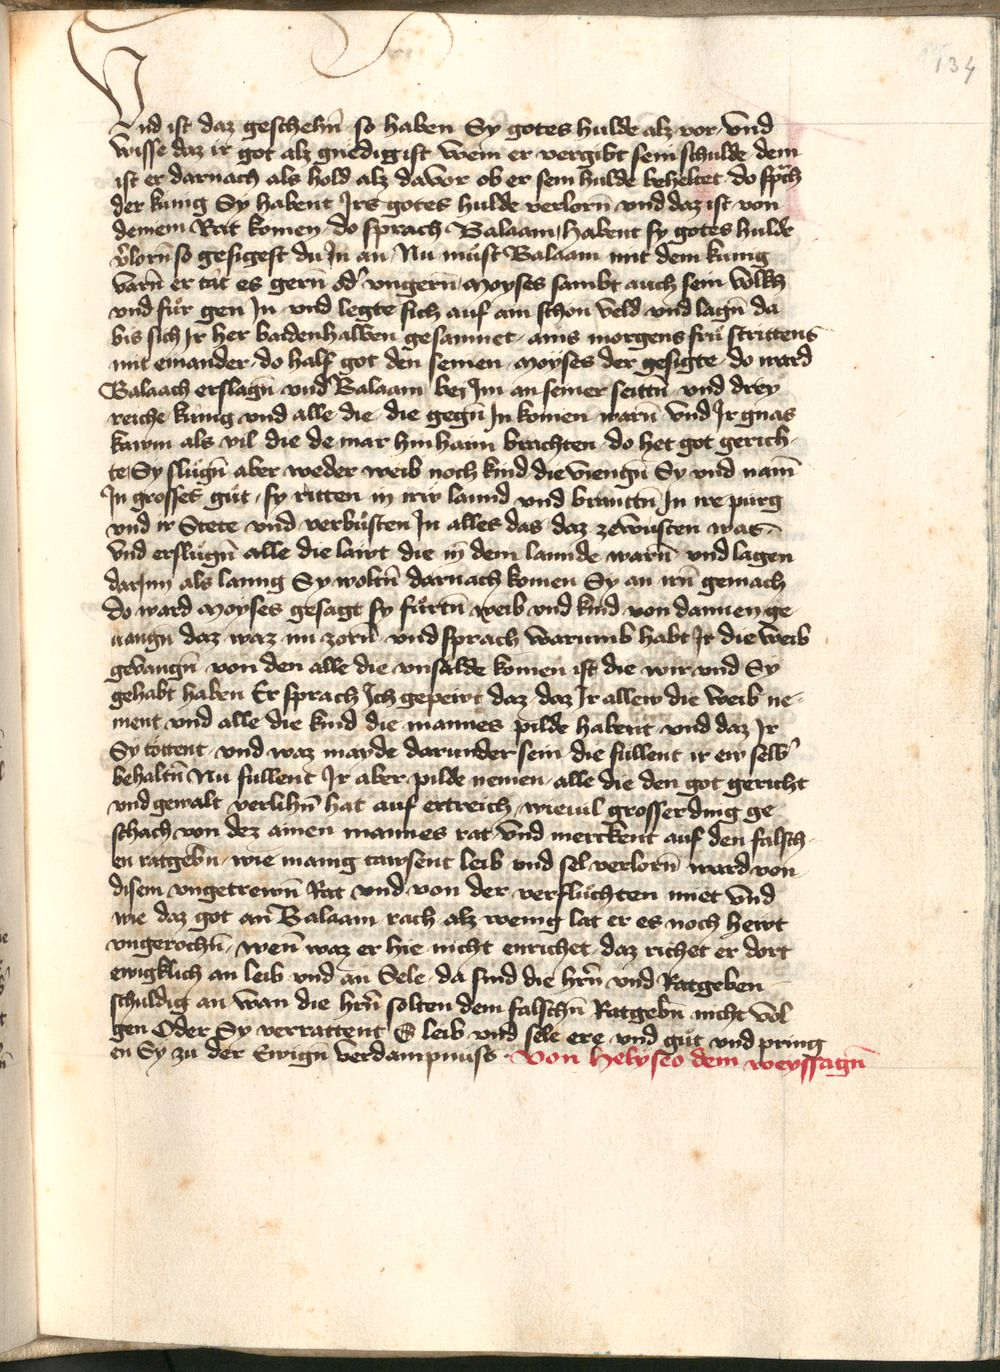 134
Vnd ist daz geschehn̄ so haben Sy gotes hulde alz vor · vnd
wisse daz ir got alz gnedig ist wem er vergibt sein schulde dem
ist er darnach als hold alz davor ob er sein hulde beheltet · do spᵃch
der kunig Sy habent Jrs gotes hulde verlorn̄ vnd daz ist von
deinem Rat komen · do sprach Balaam / habent sy gotes hulde
v̓lorn̄ so gesigest du Jn an / Nu můst Balaam mit dem kunig
varn̄ er tät es gern̄ od̓ vngern̄ · Moyses sambt auch sein volkh
vnd fůr gen Jn · vnd legte sich auf ain schon veld vnd lagn̄ da
bis sich Jr her baidenhalben gesamnet · ains morgens frů strittens
mit einander · do half got den seinen · Moyses der gesigte · do ward
Balaach erslagn̄ · vnd Balaam bei Jm an seiner seittn̄ · vnd drey
reiche kunig vnd alle die · die gegn̄ Jn komen warn̄ vnd Jr gnas
kawm als vil die de mar hin haim brachten · do het got gerich-
te Sy slůgn̄ aber weder weib noch kind die viengn̄ Sy vnd nam̄
Jn grosses gůt / sy ritten in irw lannd vnd branttn̄ Jn ire purg
vnd ir Stete vnd verbůsten Jn alles das · daz zewůsten was ·
vnd erslůgn̄ alle die lawt die in dem lannde warn̄ vnd lagen
darJnn als lanng Sy woltn̄ darnach komen Sy an irn̄ gemach
do ward Moyses gesagt sy fůrtn̄ weib vnd kind von dannen ge-
uangn̄ daz waz im zorn̄ · vnd sprach warumb habt Jr die weib
gevangn̄ von den alle die vnsälde komen ist die wir vnd Sy
gehabt haben Er sprach Jch gepeiwt daz · daz Jr allew die weib ne-
ment vnd alle die kind die mannes pilde habent · vnd daz Jr
Sy töttent · vnd waz mayde darunder sein die sullent ir ew selb̓
behaltn̄ Nu sullent Jr aber pilde nemen · alle die den got gericht
vnd gewalt verlihn̄ hat auf ertreich / wieuil grosser ding ge
schach von dez ainen mannes rat · vnd merckent auf den falsch-
en ratgebn̄ · wie manig tawsent leib vnd sel verlorn̄ ward von
disem vngetrewn̄ Rat vnd von der verflůchten miet vnd
wie daz got an Balaam rach alz wenig lat er es noch hewt
vngerochn̄ / wen̄ waz er hie nicht enrichet daz richet er dort
ewigklich an leib vnd an Sele · da sind die hrn̄ vnd Ratgeben
schuldig an wan die hrn̄ solten dem falschn̄ Ratgebn̄ nicht vol
gen Oder Sy verrattent S leib vnd sele ere vnd gůt vnd pring
en Sy zu der Ewign̄ verdampnuss · von Helyseo dem weyssagn̄